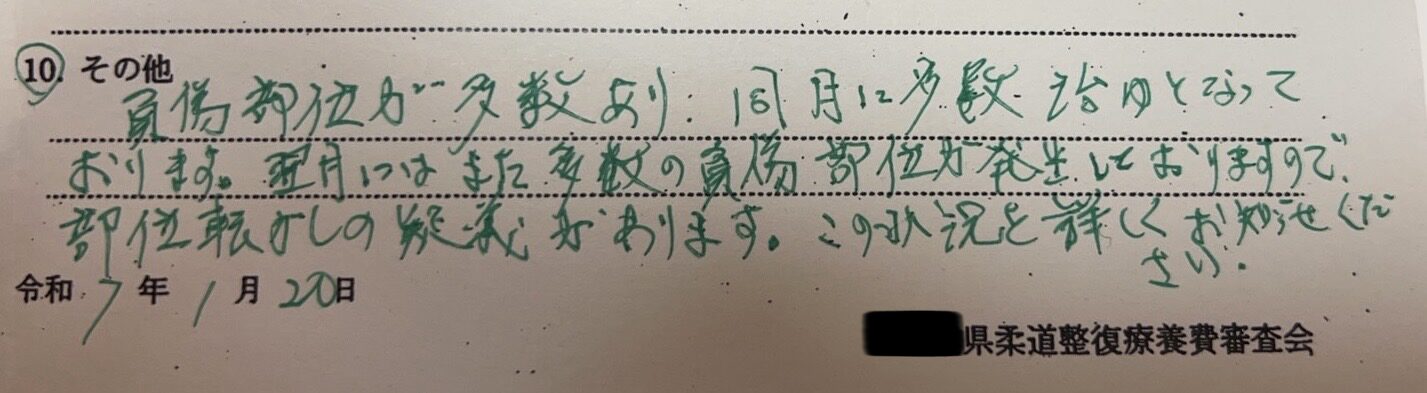 10. その他
負傷部位が多数あり、同月に多数治ゆとなって
おります。翌月にはまた多数の負傷部位が発生しておりますので、
部位転がしの疑義があります。この状況を詳しくお知らせくだ
さい。
令和 7 年 1 月 20日
県柔道整復療養費審査会